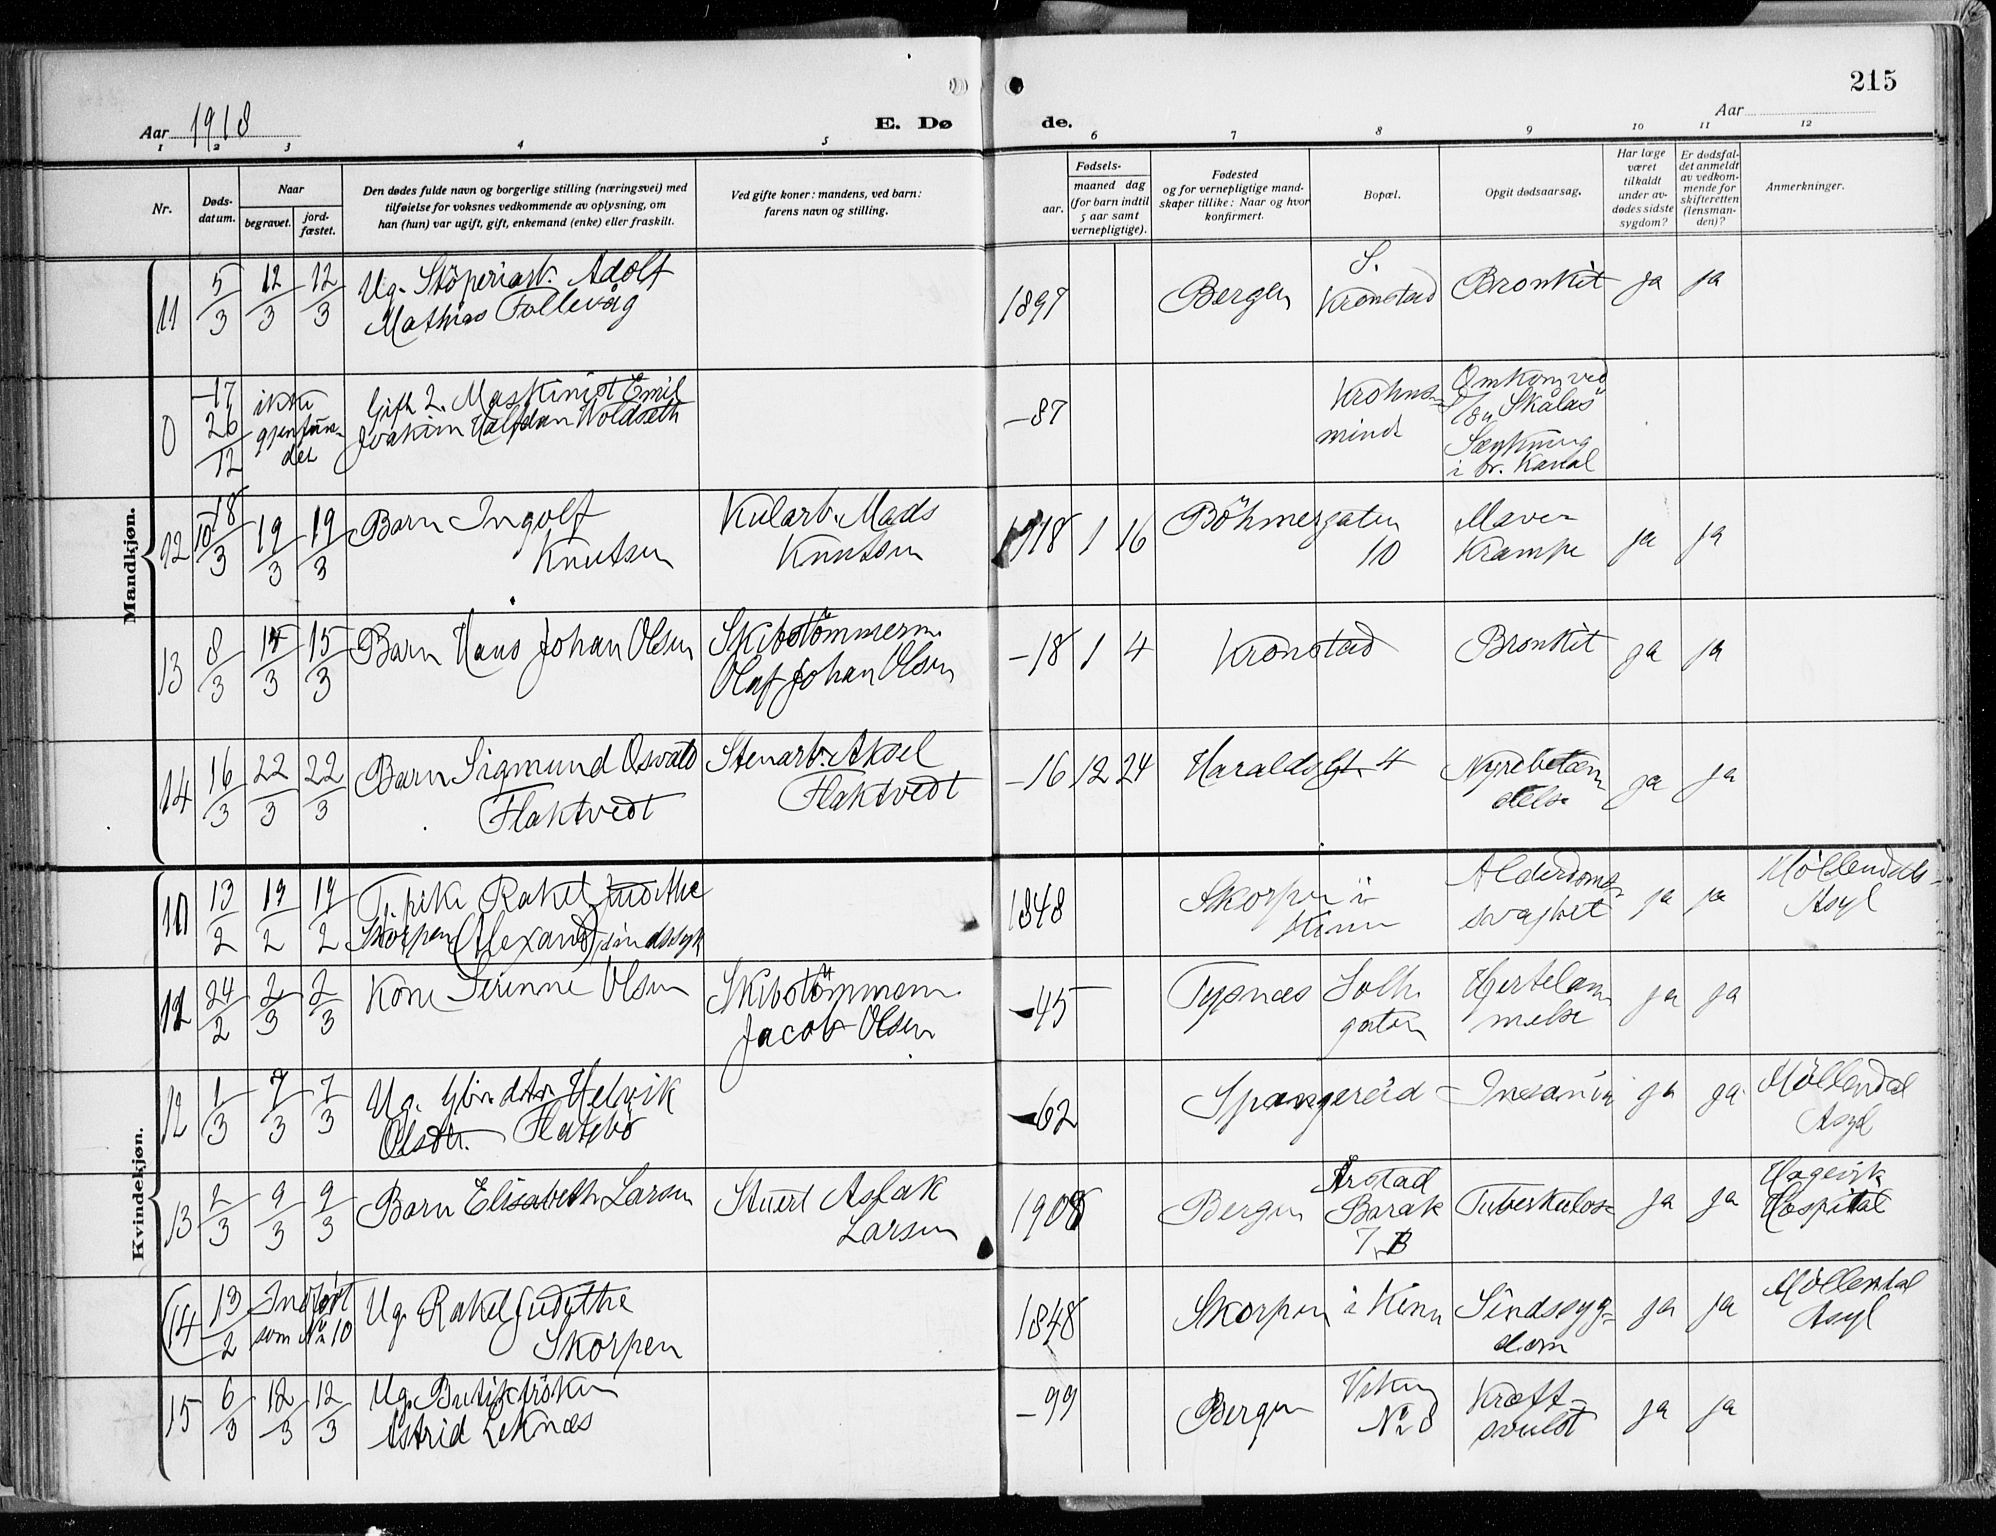 215
Aar 1918
E. Dø
de.
Aar
1 2 3 4 5 6 7 8 9 10 11 12
Nr.
Døds-
datum.
Naar
begravet.
jord-
fæstet.
Den dødes fulde navn og borgerlige stilling (næringsvei) med
tilføielse for voksnes vedkommende av oplysning, om
han (hun) var ugift, gift, enkemand (enke) eller fraskilt.
Ved gifte koner: mandens, ved barn:
farens navn og stilling.
Fødsels-
aar.
maaned dag
(for barn indtil
5 aar samt
vernepligtige).
Fødested
og for vernepligtige mand-
skaper tillike: Naar og hvor
konfirmert.
Bopæl.
Opgit dødsaarsag.
Har læge
været
tilkaldt
under av-
dødes sidste
sygdom?
Er dødsfal-
det anmeldt
av vedkom-
mende for
skifteretten
(lensman-
den)?
Anmerkninger.
Mandkjøn.
11 5/3 12/3 12/3 Ug. Støperiarb. Adolf
Mathias Follevåg
1897 Bergen S.
Kronstad Bronkit ja ja
0 -17
26/12 ikke
gjenfun-
det Gift 2. Maskinist Emil
Joakim Halfdan Woldseth
-87 Krohns-
minde Omkom ved
S/S Skålas
Sænkning
i br. Kanal
12 -18
10/3 19/3 19/3 Barn Ingolf
Knutsen Kularb. Mads
Knutsen
1918 1 16 Böhmergaten
10 Mave-
Krampe ja ja
13 8/3 15/3 15/3 Barn Hans Johan Olsen Skibstömmerm.
Olaf Johan Olsen
-18 1 4 Kronstad Bronkit ja ja
14 16/3 22/3 22/3 Barn Sigmund Osvald
Flaktvedt Stenarb. Aksel
Flaktvedt
-16 12 24 Haraldsgt. 4 Nyrebetæn
delse ja ja
Kvindekjøn.
10 13/2 19/2 19/2 Pike Rakel Judithe
Skorpen (Alexand) sindssyk
1848 Skorpen i
Kinn Alderdoms-
svaghet ja ja Möllendals
Asyl
12 24/2 2/3 2/3 Kone Serinne Olsen Skibstömmerm.
Jacob Olsen
-45 Tysnæs Solh.
gaten Hjertelam
melse ja ja
12 1/3 7/3 7/3 Ug. Helvik
Olsdtr. Flatebö
-62 Spangereid Insania ja ja Möllendal
Asyl
13 2/3 9/3 9/3 Barn Elisabeth Larsen Stuert Aslak
Larsen
1908 Bergen Årstad
Barak
7 B Tuberkulos- ja ja Hagevik
Hospital
(14 13/2 Indfört
som No 10 Ug. Rakel Judithe
Skorpen
1848 Skorpen i Kinn Sindssyg-
dom ja ja Möllendal
Asyl
15 6/3 12/3 12/3 Ug. Butikfröken
Astrid Leknæs
-99 Bergen Viken
No 8 Kræft-
svulst ja ja